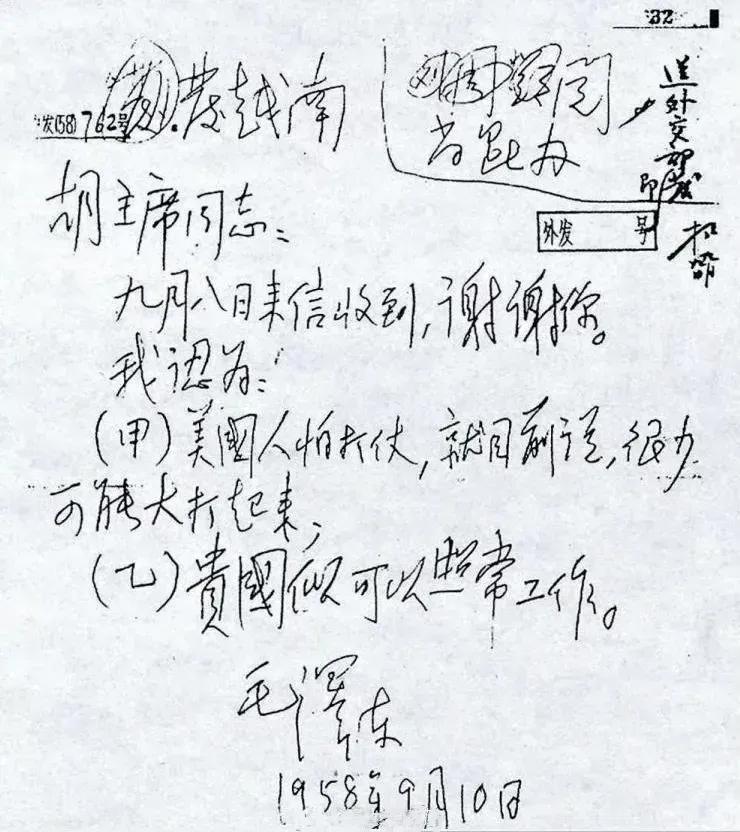 32
发(58)762号
发越南
尚昆办
送外交部
印发
外发 号
胡主席同志:
九月八日来信收到,谢谢你。
我认为:
(甲)美國人怕打仗,就目前说,很少
可能大打起来;
(乙)貴國似可以照常工作。
毛泽东
1958年9月10日